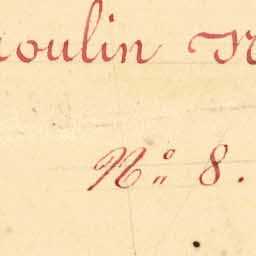 moulin N
Nº 8.